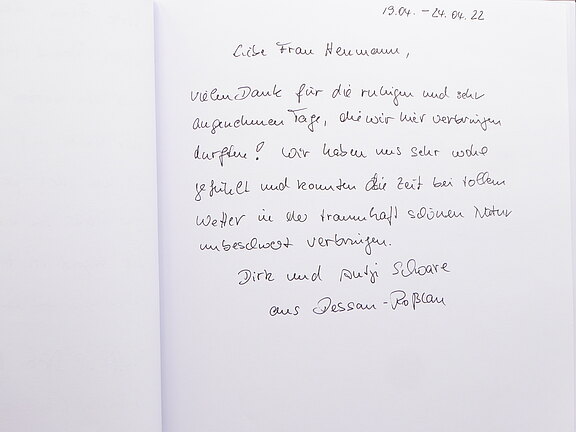 19.04. – 24.04.22
Liebe Frau Herrmann,
vielen Dank für die ruhigen und sehr
angenehmen Tage, die wir hier verbringen
durften! Wir haben uns sehr wohl
gefühlt und konnten die Zeit bei tollem
Wetter in der traumhaft schönen Natur
unbeschwert verbringen.
Dirk und
aus Dessau-Roßlau